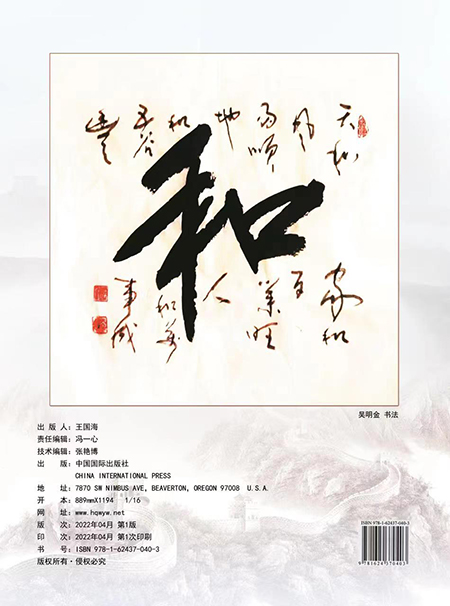 天和
风
雨顺
地
和
五谷
丰
和
家和
百
业旺
人
和万
事成
吴明金 书法
出 版 人：王国海
责任编辑：冯一心
技术编辑：张艳博
出 版：中国国际出版社
CHINA INTERNATIONAL PRESS
地 址：7870 SW NIMBUS AVE, BEAVERTON, OREGON 97008 U.S.A.
开 本：889mmX1194 1/16
网 址：www.hqwyw.net
版 次：2022年04月 第1版
印 次：2022年04月 第1次印刷
书 号：ISBN 978-1-62437-040-3
版权所有·侵权必究
ISBN 978-1-62437-040-3
9 781624 370403